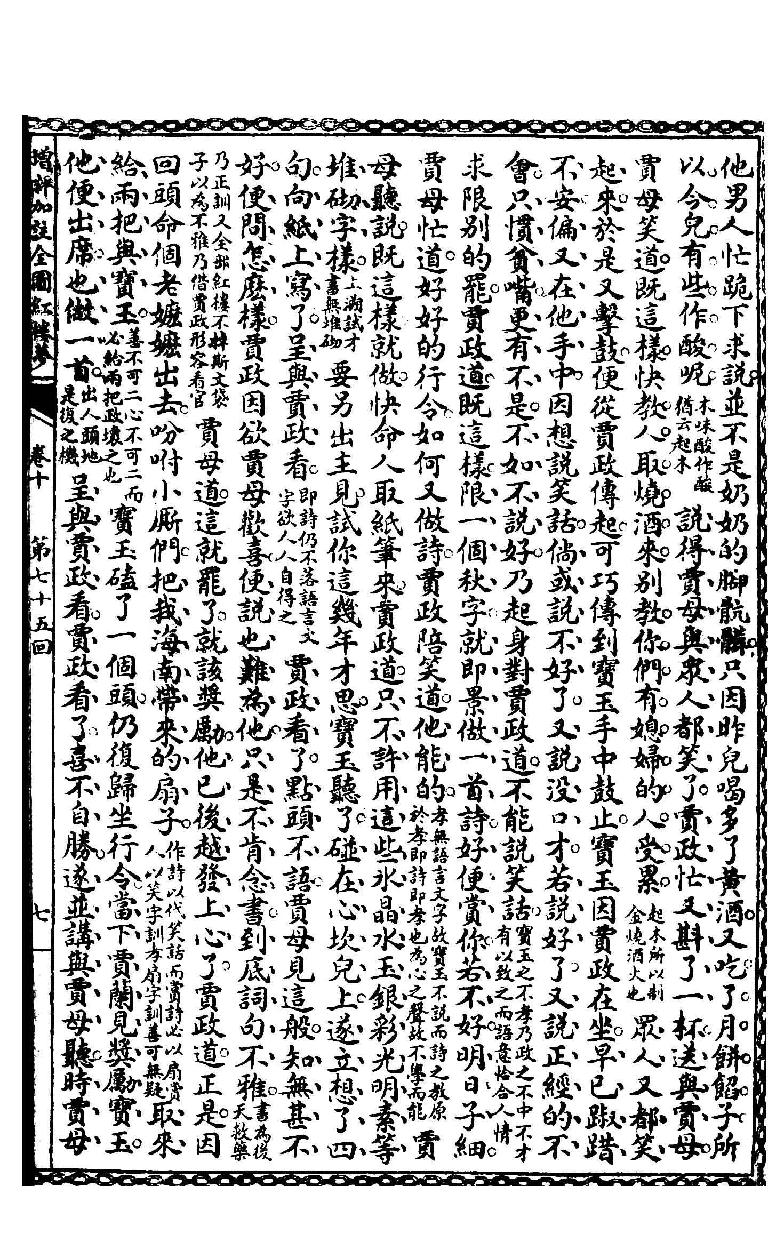 他男人忙跪下求說並不是奶奶的腳骯髒只因昨兒喝多了黃酒又吃了月餅餡子所
以今兒有些作酸呢木味酸作酸猶云起木說得賈母與眾人都笑了賈政忙又斟了一杯送與賈母
賈母笑道既這樣快教人取燒酒來別教你們有媳婦的人受累起木所以制金燒酒火也眾人又都笑
起來於是又擊鼓便從賈政傳起可巧傳到寶玉手中鼓止寶玉因賈政在坐早已踧踖
不安偏又在他手中因想說笑話倘或說不好了又說沒口才若說好了又說正經的不
會只慣貧嘴更有不是不如不說好乃起身對賈政道不能說笑話寶玉之不孝乃政之不中不才有以致之而語意恰合人情
求限別的罷賈政道既這樣限一個秋字就即景做一首詩好便賞你若不好明日子細
賈母忙道好好的行令如何又做詩賈政陪笑道他能的孝無語言文字故寶玉不說而詩之教原於孝即詩即孝也為心之聲故不學而能賈
母聽說既這樣就做快命人取紙筆來賈政道只不許用這些水晶水玉銀彩光明素等
堆砌字樣上溯試才書無堆砌要另出主見試你這幾年才思寶玉聽了碰在心坎兒上遂立想了四
句向紙上寫了呈與賈政看即詩仍不落語言文字欲人人自得之賈政看了點頭不語賈母見這般知無甚不
好便問怎麼樣賈政因欲賈母歡喜便說也難為他只是不肯念書到底詞句不雅書為後天教藥
乃正訓又全部紅樓不掉斯文袋子以為不雅乃借賈政形容看官賈母道這就罷了就該獎勵他已後越發上心了賈政道正是因
回頭命個老嬤嬤出去吩咐小廝們把我海南帶來的扇子作詩以代笑話而賞詩必以扇賞人以笑字訓孝扇字訓善可無疑取來
給兩把與寶玉善不可二心不可二而必給兩把政壞之也寶玉磕了一個頭仍復歸坐行令當下賈蘭見獎勵寶玉
他便出席也做一首出人頭地是復之機呈與賈政看賈政看了喜不自勝遂並講與賈母聽時賈母
增評加註全圖紅樓夢
卷十
第七十五回
七